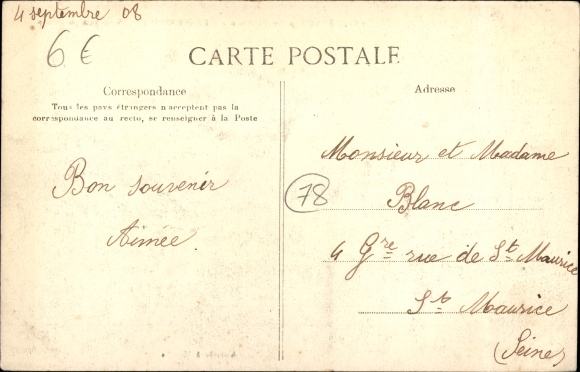 4 septembre 08
6 €
CARTE POSTALE
Correspondance
Tous les pays étrangers n'acceptent pas la
correspondance au recto, se renseigner à la Poste
Bon souvenir
Aimée.
Adresse
Monsieur et Madame
78
Blanc
4 Gre rue de St Maurice
St Maurice
(Seine)